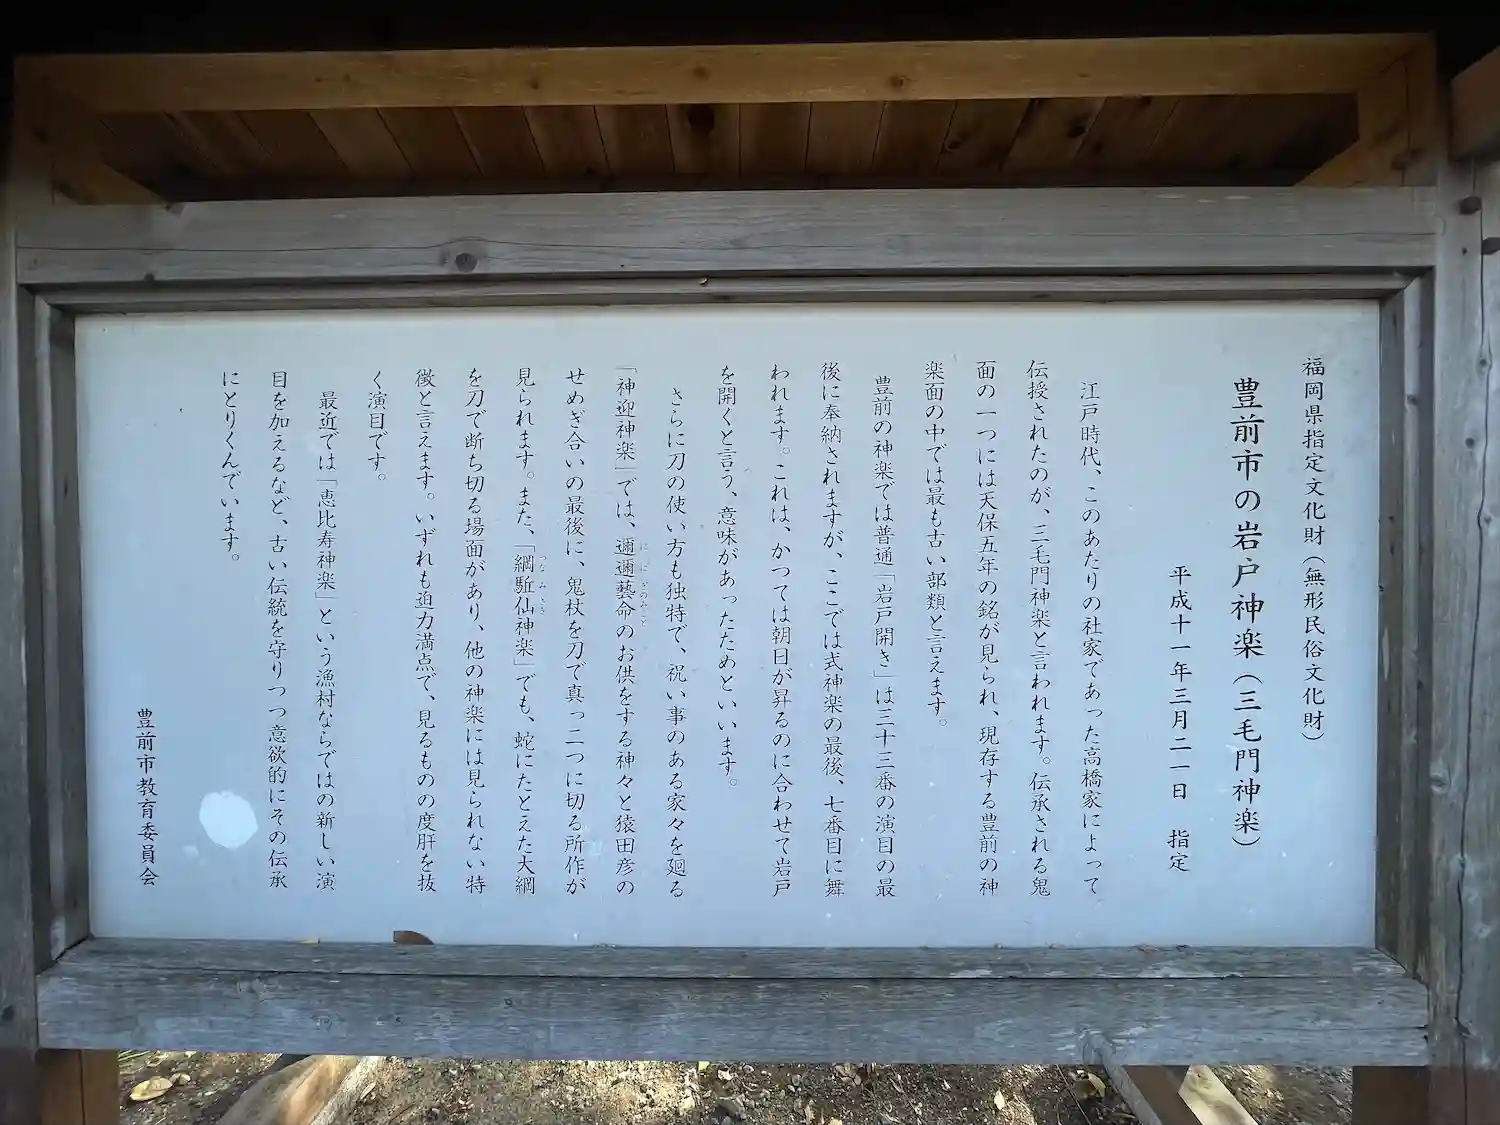 福岡県指定文化財(無形民俗文化財)
豊前市の岩戸神楽(三毛門神楽)
平成十一年三月二一日 指定
江戸時代、このあたりの社家であった高橋家によって
伝授されたのが、三毛門神楽と言われます。伝承される鬼
面の一つには天保五年の銘が見られ、現存する豊前の神
楽面の中では最も古い部類と言えます。
豊前の神楽では普通「岩戸開き」は三十三番の演目の最
後に奉納されますが、ここでは式神楽の最後、七番目に舞
われます。これは、かつては朝日が昇るのに合わせて岩戸
を開くと言う、意味があったためといいます。
さらに刀の使い方も独特で、祝い事のある家々を廻る
「神迎神楽」では、邇邇藝命のお供をする神々と猿田彦の
ににぎのみこと
せめぎ合いの最後に、鬼杖を刀で真っ二つに切る所作が
見られます。また、「綱駈仙神楽」でも、蛇にたとえた大綱
つなみさき
を刀で断ち切る場面があり、他の神楽には見られない特
徴と言えます。いずれも迫力満点で、見るものの度肝を抜
く演目です。
最近では「恵比寿神楽」という漁村ならではの新しい演
目を加えるなど、古い伝統を守りつつ意欲的にその伝承
にとりくんでいます。
豊前市教育委員会